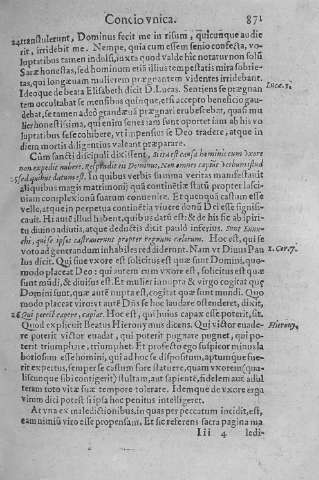 Concio vnica. 871
transtulerunt, Dominus fecit me in risum, quicunque audie
rit, irridebit me. Nempe, quia cum essem senio confecta, vo-
luptatibus tamen indulsi, iuxta quod valde hic notatur non solū
Saræ honestas, sed hominum etiā illius tempestatis mira sobrie-
tas, qui longæuam mulierem prægnantem videntes irridebant.
Ideoque de beata Elisabeth dicit D. Lucas. Sentiens se prægnan Lucæ. 1.
tem occultabat se mensibus quinque, etsi accepto beneficio gau-
debat, se tamen adeò grandæuā prægnari erubescebat, quasi mu
lier honestissima, qui enim senes iam sunt oportet iam ab his vo
luptatibus sese cohibere, vt impensius se Deo tradere, atque in
diem mortis diligentius valeant præparare.
Cùm sancti discipuli dixissent, Si ita est causa hominis cum vxore
non expedit nubere. Respondit eis Dominus, Non omnes capiūt verbum istud
sed quibus datum est. In quibus verbis summa veritas manifestauit
aliquibus magis matrimonij quā continētiæ statū propter lasci-
uiam complexioni suatum conuenire. Et quenquā castum esse
velle, atque in perpetua continētia viuere donū Dei esse signifi-
cauit. Hi autē istud habent, quibus datū est: & de his sic ab spiri-
tu diuino adiutis, atque deductis dicit paulò inferius. Sunt Eunu-
chi, qui se ipsos castrauerunt propter regnum cœlorum. Hoc est, qui se
voto ad generandum inhabiles reddiderunt. Nam vt Diuus Pau 1. Cor. 7.
lus dicit. Qui sine vxore est solicitus est quæ sunt Domini, quo-
modo placeat Deo: qui autem cum vxore est, solicitus est quæ
sunt mūdi, & diuisus est. Et mulier innupta & virgo cogitat quæ
Domini sunt, quæ autē nupta est, cogitat quæ sunt mundi. Quo
modo placeat viro: vt autē Dn̄s se hoc laudare ostenderet, dixit,
Qui potest capere, capiat. Hoc est, qui huius capax esse poterit, sit.
Quod explicuit Beatus Hieronymus dicens. Qui victor euade- Hieron.
re poterit victor euadat, qui poterit pugnare pugnet, qui po-
terit triumphare, triumphet. Et profectò ego suspicor minus la
boriosum esse homini, qui ad hoc se dispositum, aptumque fue-
rit expertus, semper se castum fore statuere, quam vxorem (qua-
liscunque sibi contigerit) stultam, aut sapientē, fidelem aut adul
teram toto vitæ suæ tempore tolerare. Idemque de vxore erga
virum dici potest si ipsa hoc penitus intelligeret.
At vna ex maledictionibus, in quas per peccatum incidit, est,
eam nimiū viro esse propensam. Et sic referens sacra pagina ma
Iii 4 ledi-